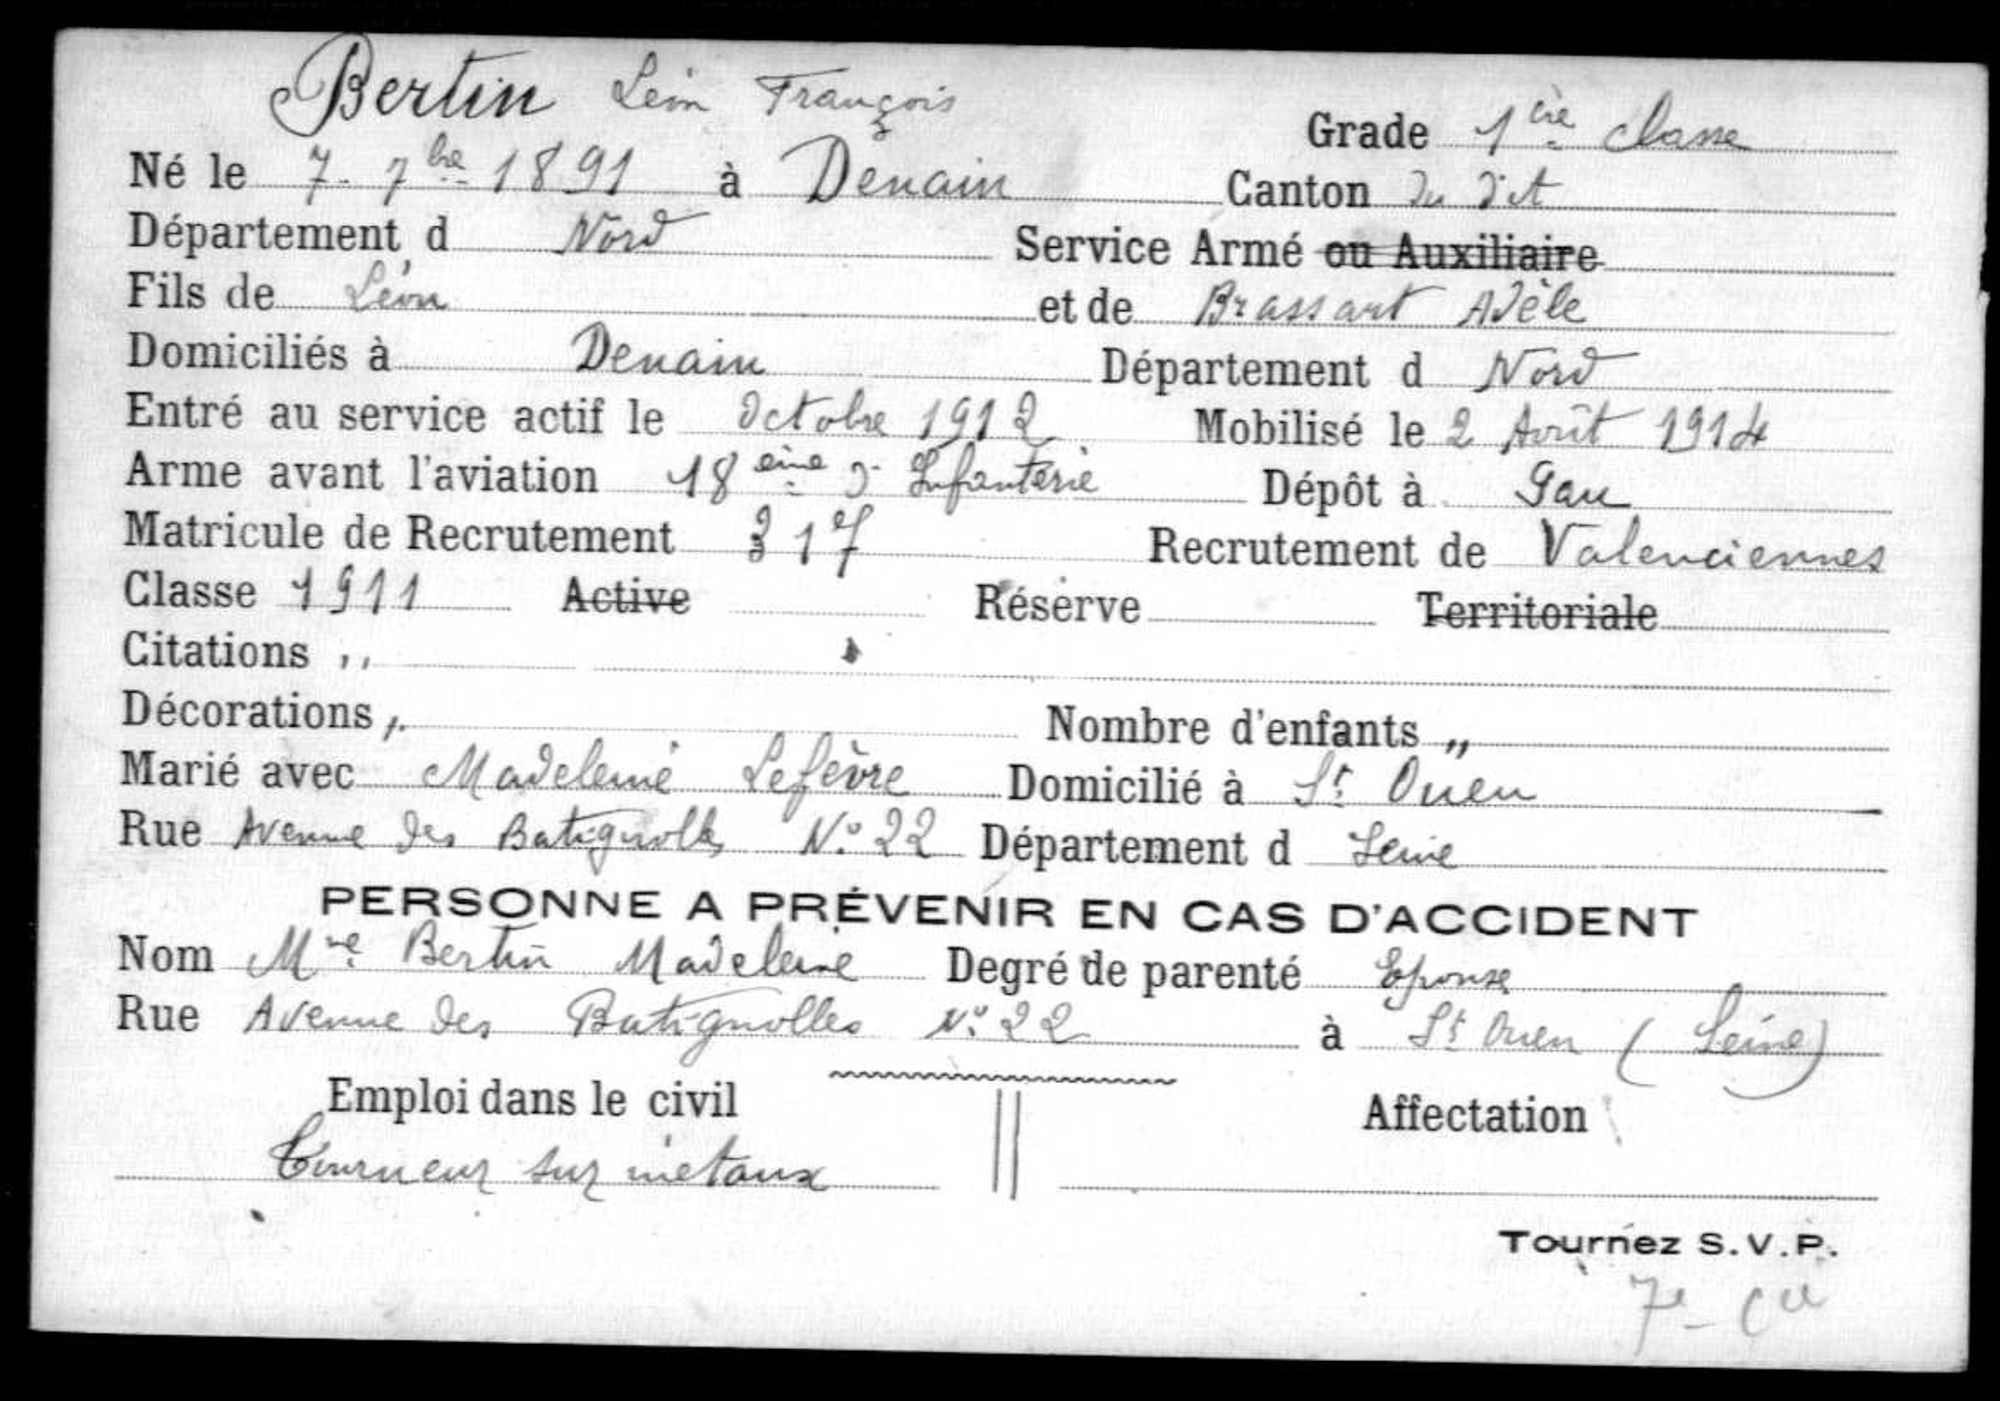 Bertin Léon François
Grade 1ère classe
Né le 7. 7bre 1891 à Denain Canton du dit
Département d Nord Service Armé ou Auxiliaire
Fils de Léon et de Brassart Adèle
Domiciliés à Denain Département d Nord
Entré au service actif le Octobre 1912 Mobilisé le 2 Août 1914
Arme avant l'aviation 18ème d' Infanterie Dépôt à Pau
Matricule de Recrutement 317 Recrutement de Valenciennes
Classe 1911 Active Réserve Territoriale
Citations ,,
Décorations ,, Nombre d'enfants ,,
Marié avec Madeleine Lefèvre Domicilié à St Ouen
Rue Avenue des Batignolles N° 22 Département d Seine
PERSONNE A PRÉVENIR EN CAS D'ACCIDENT
Nom Mme Bertin Madeleine Degré de parenté Epouse
Rue Avenue des Batignolles N° 22 à St Ouen (Seine)
Emploi dans le civil Affectation
Tourneur sur métaux
Tournez S.V.P.
7e Cie